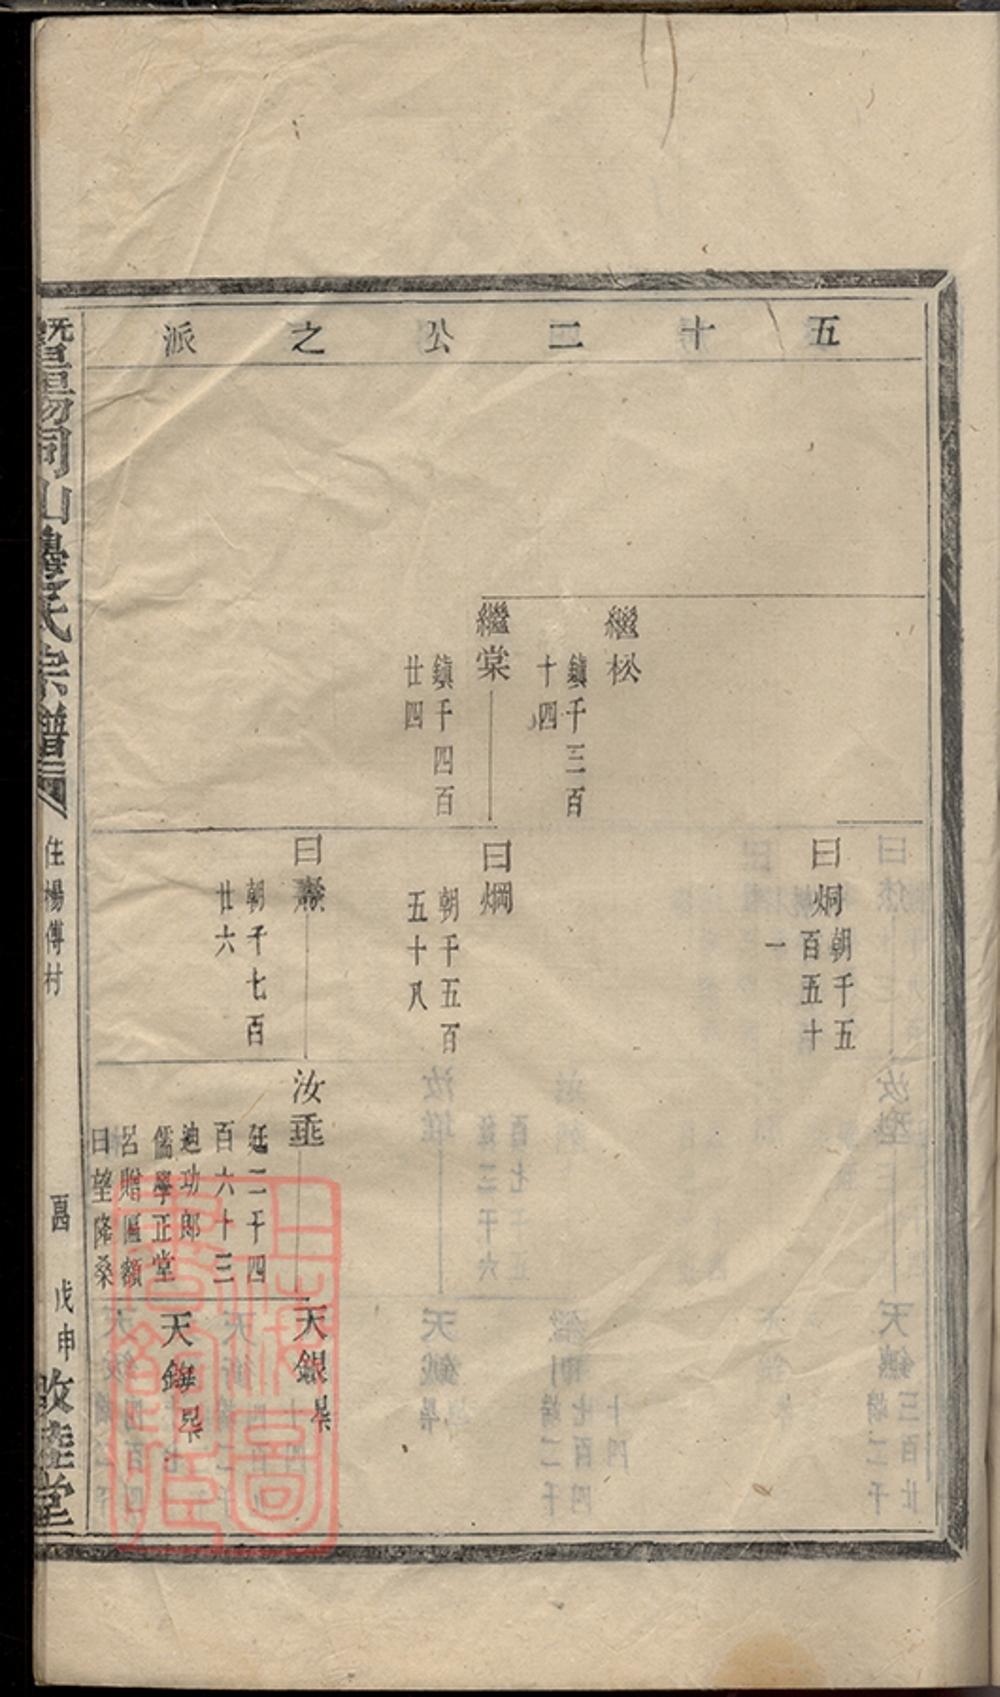 五十二公之派
繼松
鎮千三百
十四
繼棠
鎮千四百
廿四
曰烔
朝千五
百五十
一
曰焵
朝千五百
五十八
曰
朝千七百
廿六
汝垂
廷二千四
百六十三
迪功郎
儒學正堂
呂贈匾額
曰望隆桑
天銀
天鋂
暨陽同山樓氏宗譜
住楊傅村
戊申
敦睦堂
上海圖書館藏